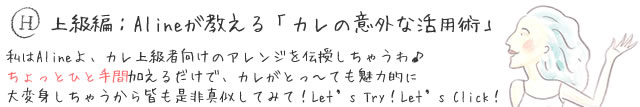 H 上級編;Alineが教える「カレの意外な活用術」
私はAlineよ、カレ上級者向けのアレンジを伝授しちゃうわ♪
ちょっとひと手間加えるだけで、カレがとっ〜ても魅力的に
大変身しちゃうから皆も是非真似してみて!Let's Try!Let's Click!